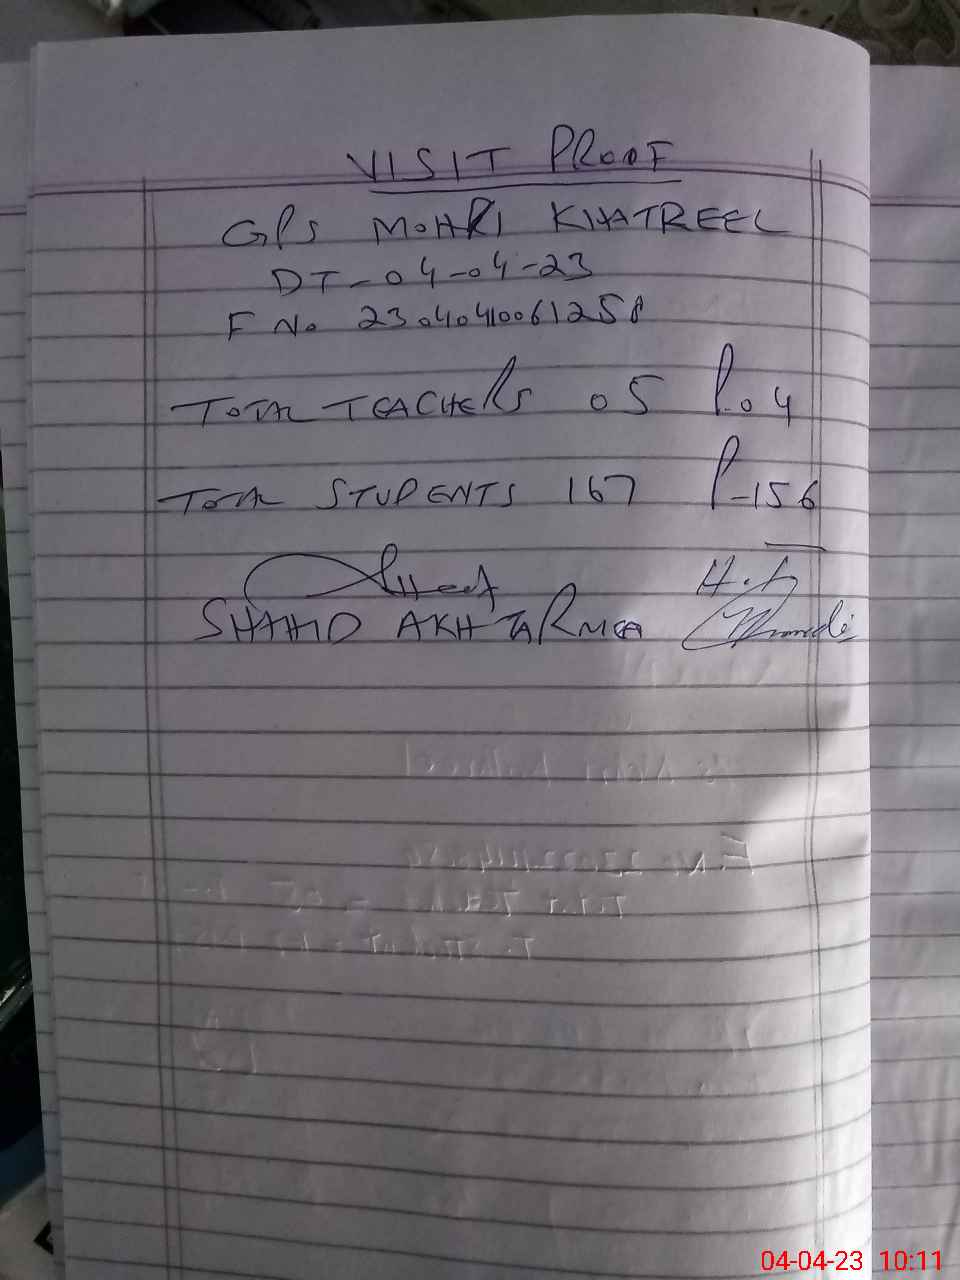 VISIT PROOF
GPS MOHRI KHATREEL
DT - 04-04-23
F No 23040410061258
TOTAL TEACHERS 05 P.04
TOTAL STUDENTS 167 P-156
SHAHID AKHTAR MEA
H.T
04-04-23 10:11